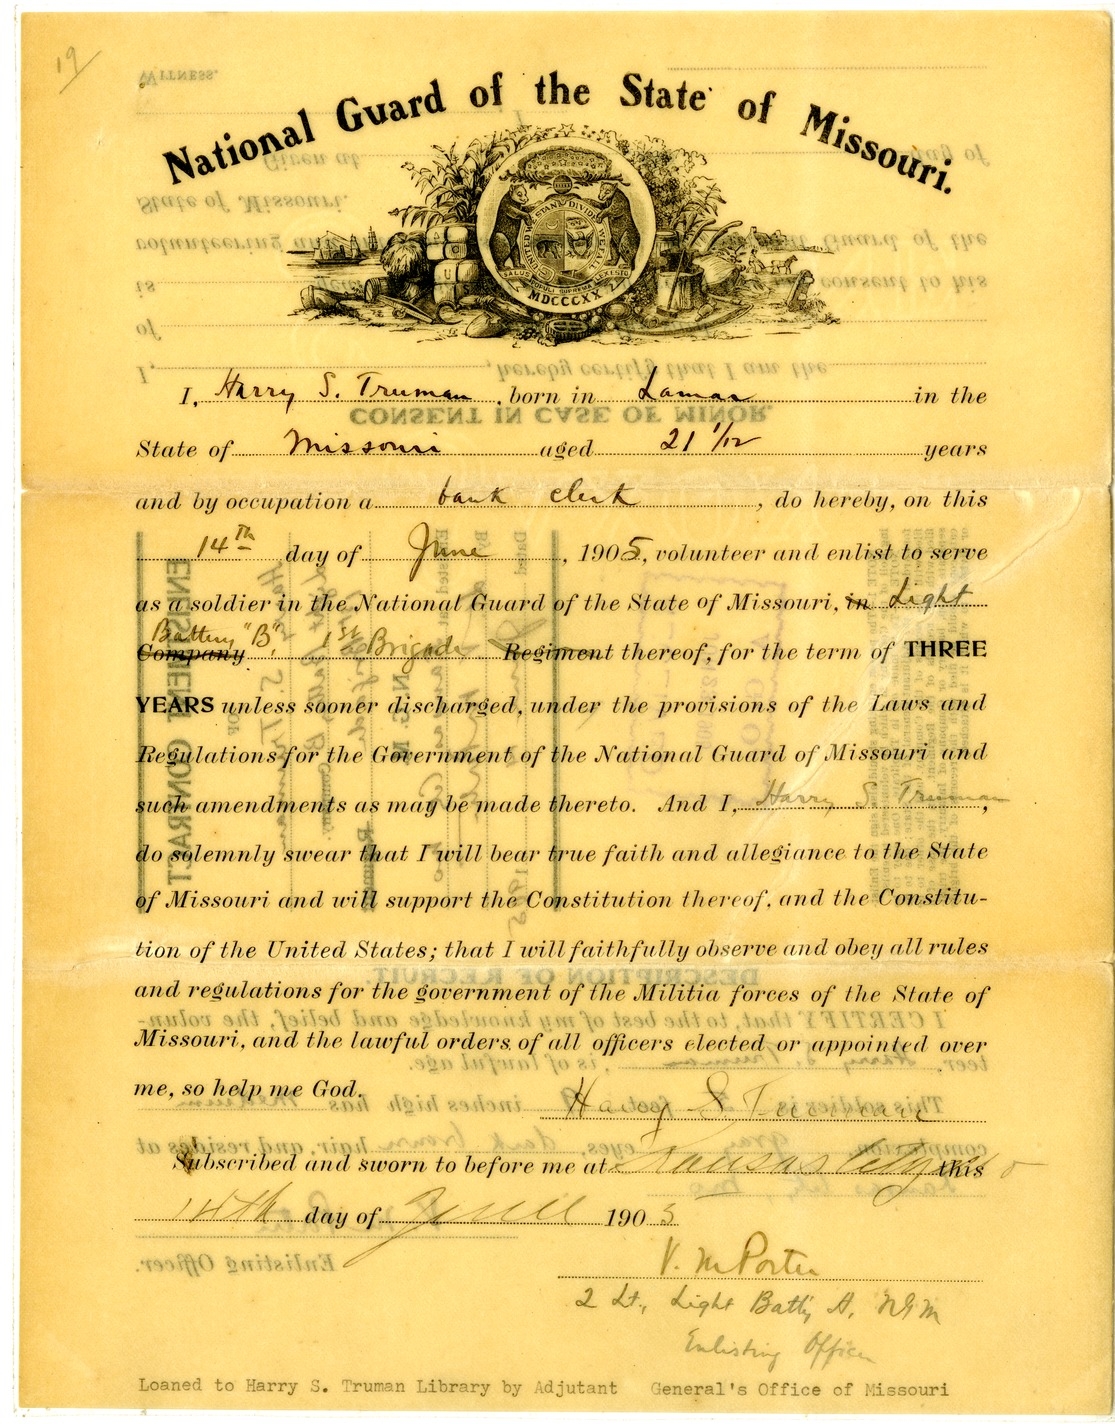 19
National Guard of the State of Missouri.
UNITED WE STAND DIVIDED WE FALL
SALUS POPULI SUPREMA LEX ESTO
MDCCCXX
I, Harry S. Truman, born in Lamar in the
State of Missouri aged 21 1/12 years
and by occupation a bank clerk, do hereby, on this
14th day of June, 1905, volunteer and enlist to serve
as a soldier in the National Guard of the State of Missouri, in Light
Battery "B",
Company 1st Brigade Regiment thereof, for the term of THREE
YEARS unless sooner discharged, under the provisions of the Laws and
Regulations for the Government of the National Guard of Missouri and
such amendments as may be made thereto. And I, Harry S. Truman,
do solemnly swear that I will bear true faith and allegiance to the State
of Missouri and will support the Constitution thereof, and the Constitu-
tion of the United States; that I will faithfully observe and obey all rules
and regulations for the government of the Militia forces of the State of
Missouri, and the lawful orders of all officers elected or appointed over
me, so help me God.
Harry S Truman
Subscribed and sworn to before me at Kansas City Mo this
14th day of June 1905
V. M Porter
2 Lt., Light Batt'y A, NGM
Enlisting Officer
Loaned to Harry S. Truman Library by Adjutant General's Office of Missouri